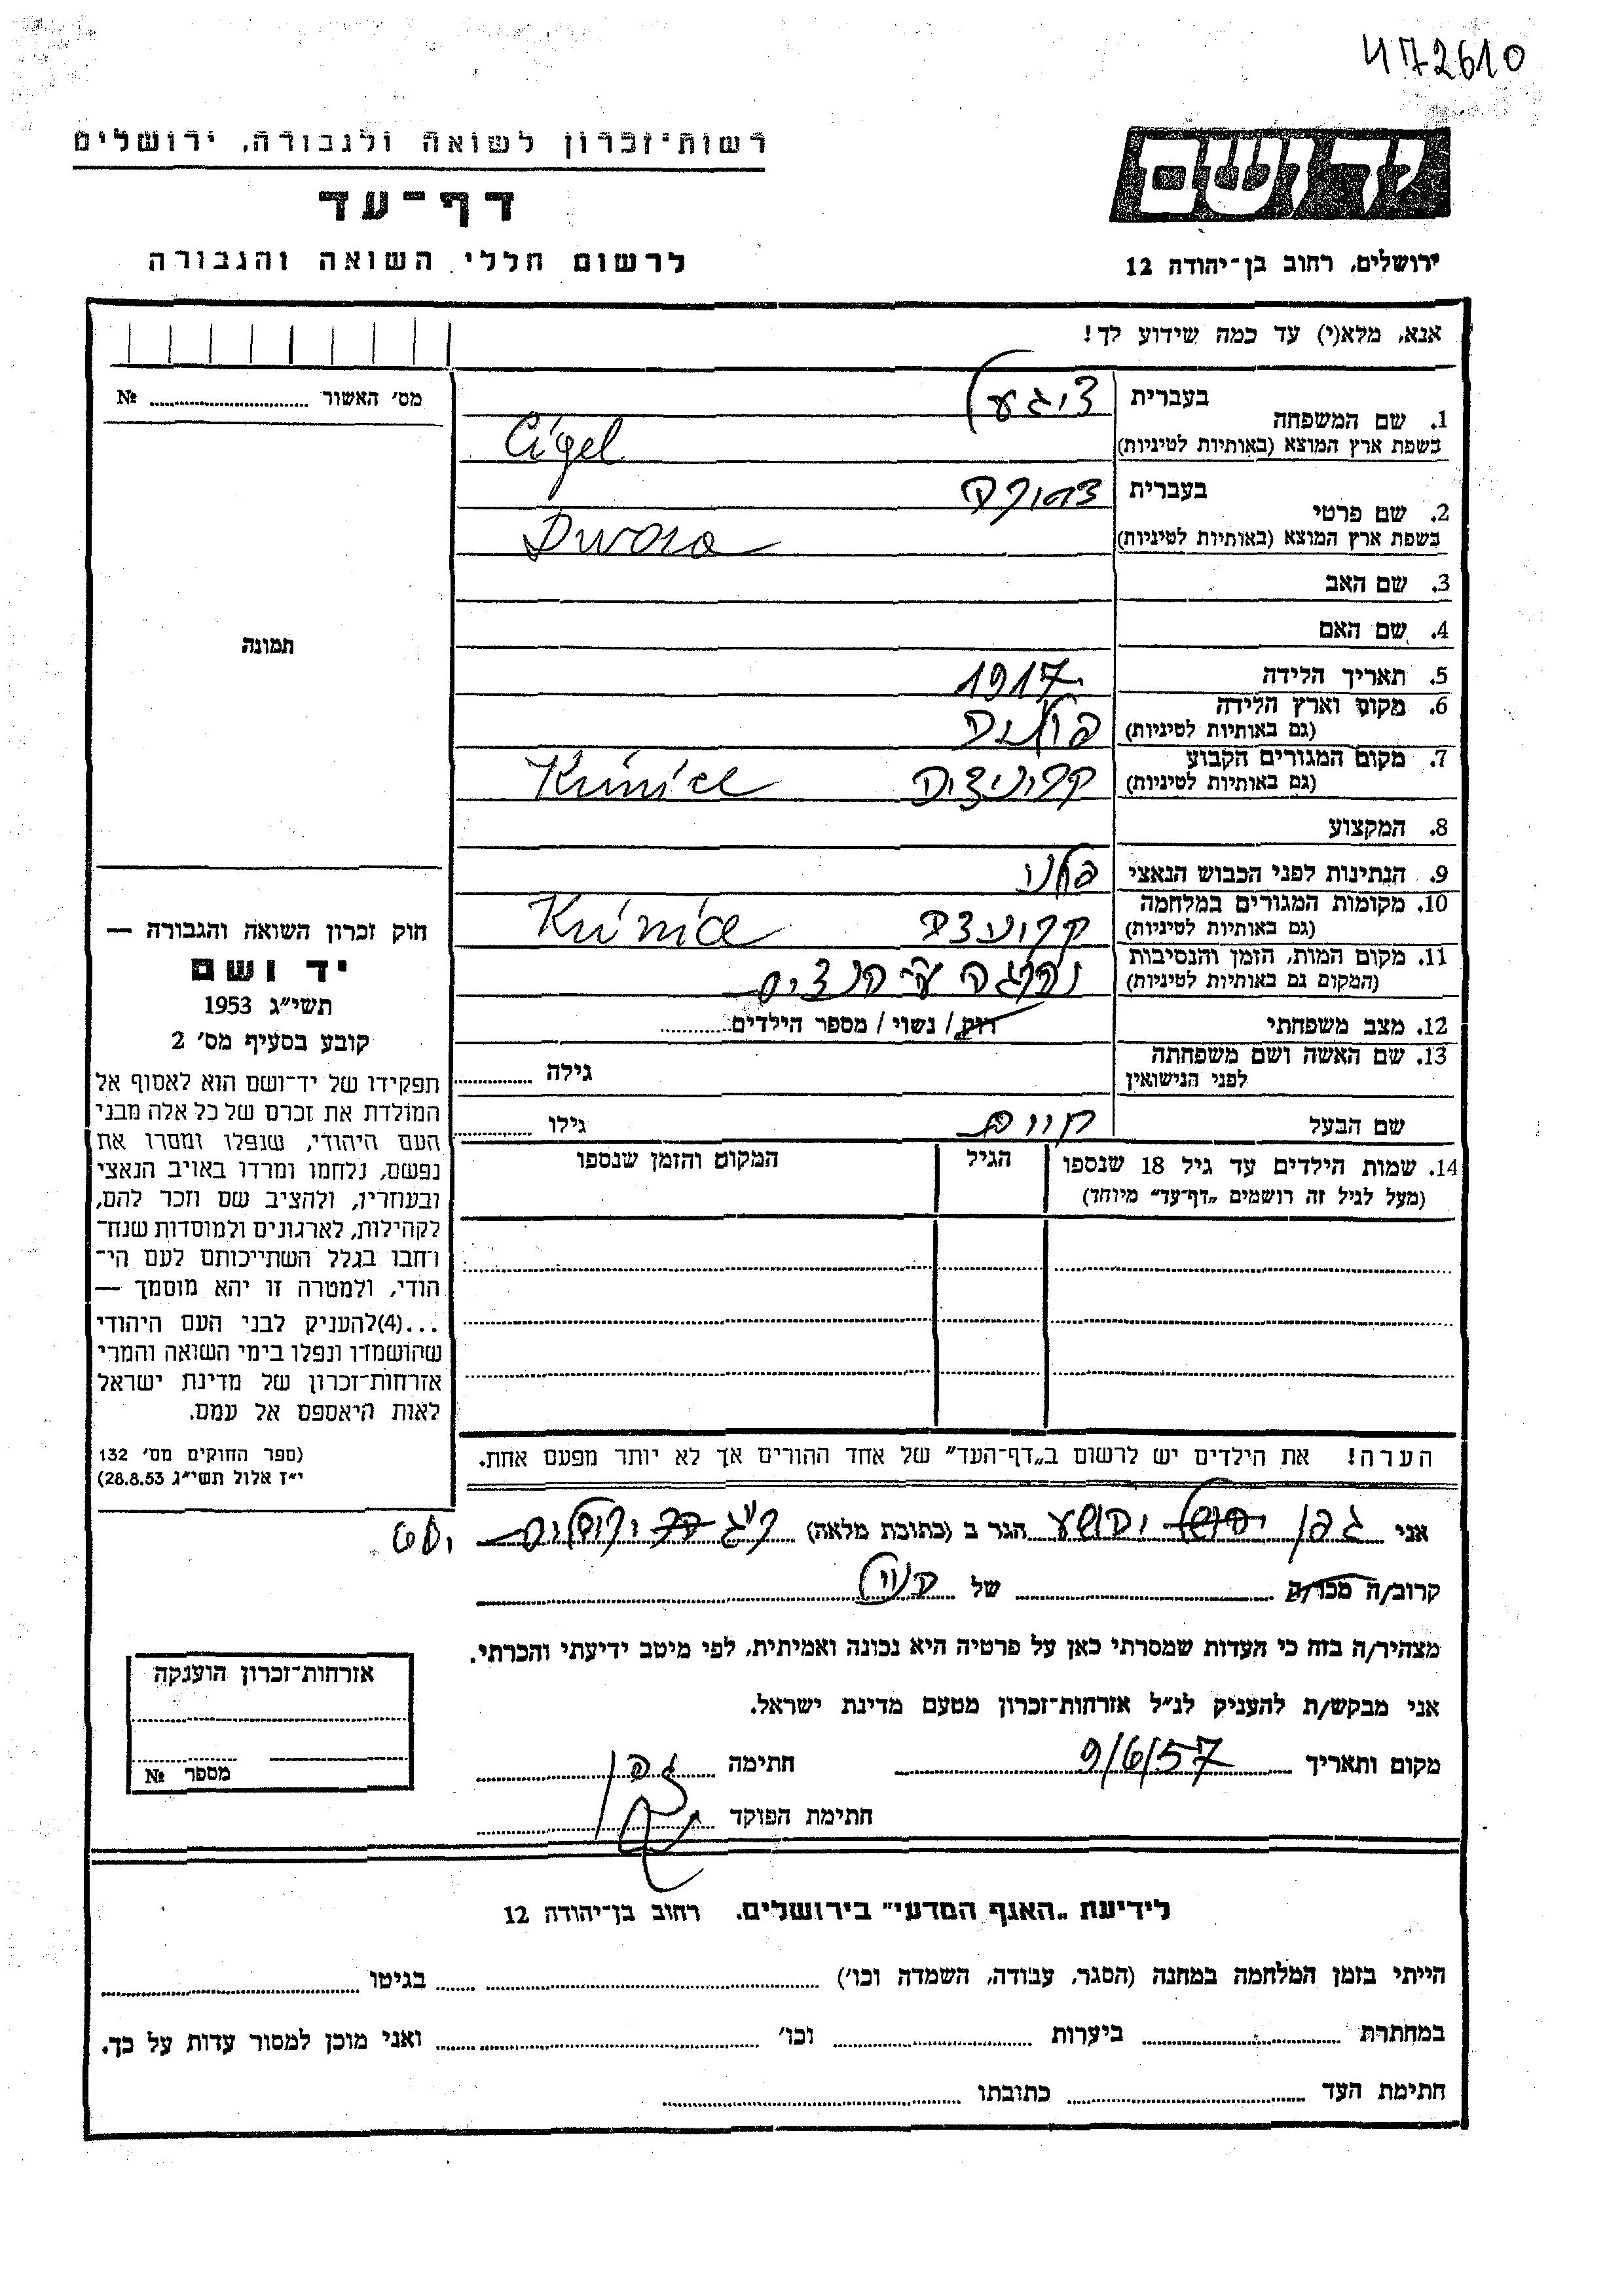 472610
רשות־זכרון לשואה ולגבורה, ירושלים
דף־עד
לרשום חללי השואה והגבורה
ידושם
ירושלים, רחוב בן־יהודה 12
אנא, מלא(י) עד כמה שידוע לך!
מס׳ האשור № ........
1. שם המשפחה
בעברית ציגעל
בשפת ארץ המוצא (באותיות לטיניות) Cigel
2. שם פרטי
בעברית
בשפת ארץ המוצא (באותיות לטיניות) Dwora
3. שם האב
4. שם האם
5. תאריך הלידה 1917
6. מקום וארץ הלידה
(גם באותיות לטיניות) פולניה
7. מקום המגורים הקבוע
(גם באותיות לטיניות) קריניצה
8. המקצוע
9. הנתינות לפני הכבוש הנאצי פולני
10. מקומות המגורים במלחמה
(גם באותיות לטיניות)
11. מקום המות, הזמן והנסיבות
(המקום גם באותיות לטיניות) נהרגה ע״י הנצים
12. מצב משפחתי רוק / נשוי / מספר הילדים........
13. שם האשה ושם משפחתה
לפני הנישואין
גילה ........
שם הבעל חיים גילו ........
14. שמות הילדים עד גיל 18 שנספו
(מעל לגיל זה רושמים „דף־עד״ מיוחד)
הגיל
המקום והזמן שנספו
תמונה
חוק זכרון השואה והגבורה —
יד ושם
תשי״ג 1953
קובע בסעיף מס׳ 2
תפקידו של יד־ושם הוא לאסוף אל
המולדת את זכרם של כל אלה מבני
העם היהודי, שנפלו ומסרו את
נפשם, נלחמו ומרדו באויב הנאצי
ובעוזריו, ולהציב שם וזכר להם,
לקהילות, לארגונים ולמוסדות שנח־
רחבו בגלל השתייכותם לעם הי־
הודי, ולמטרה זו יהא מוסמך —
...(4)להעניק לבני העם היהודי
שהושמדו ונפלו בימי השואה והמרי
אזרחות־זכרון של מדינת ישראל
לאות היאספם אל עמם.
(ספר החוקים מס׳ 132
י״ז אלול תשי״ג 28.8.53)
הערה! את הילדים יש לרשום ב„דף־העד״ של אחד ההורים אך לא יותר מפעם אחת.
אני גפן יהושע הגר ב (כתובת מלאה)
קרוב/ה מכר/ה ........ של
מצהיר/ה בזה כי העדות שמסרתי כאן על פרטיה היא נכונה ואמיתית, לפי מיטב ידיעתי והכרתי.
אני מבקש/ת להעניק לנ״ל אזרחות־זכרון מטעם מדינת ישראל.
מקום ותאריך 9/6/57 חתימה גפן
חתימת הפוקד
אזרחות־זכרון הוענקה
מספר №
לידיעת „האגף המדעי״ בירושלים. רחוב בן־יהודה 12
הייתי בזמן המלחמה במחנה (הסגר, עבודה, השמדה וכו׳) ........ בגיטו ........
במחתרת ........ ביערות ........ וכו׳ ........ ואני מוכן למסור עדות על כך.
חתימת העד ........ כתובתו ........